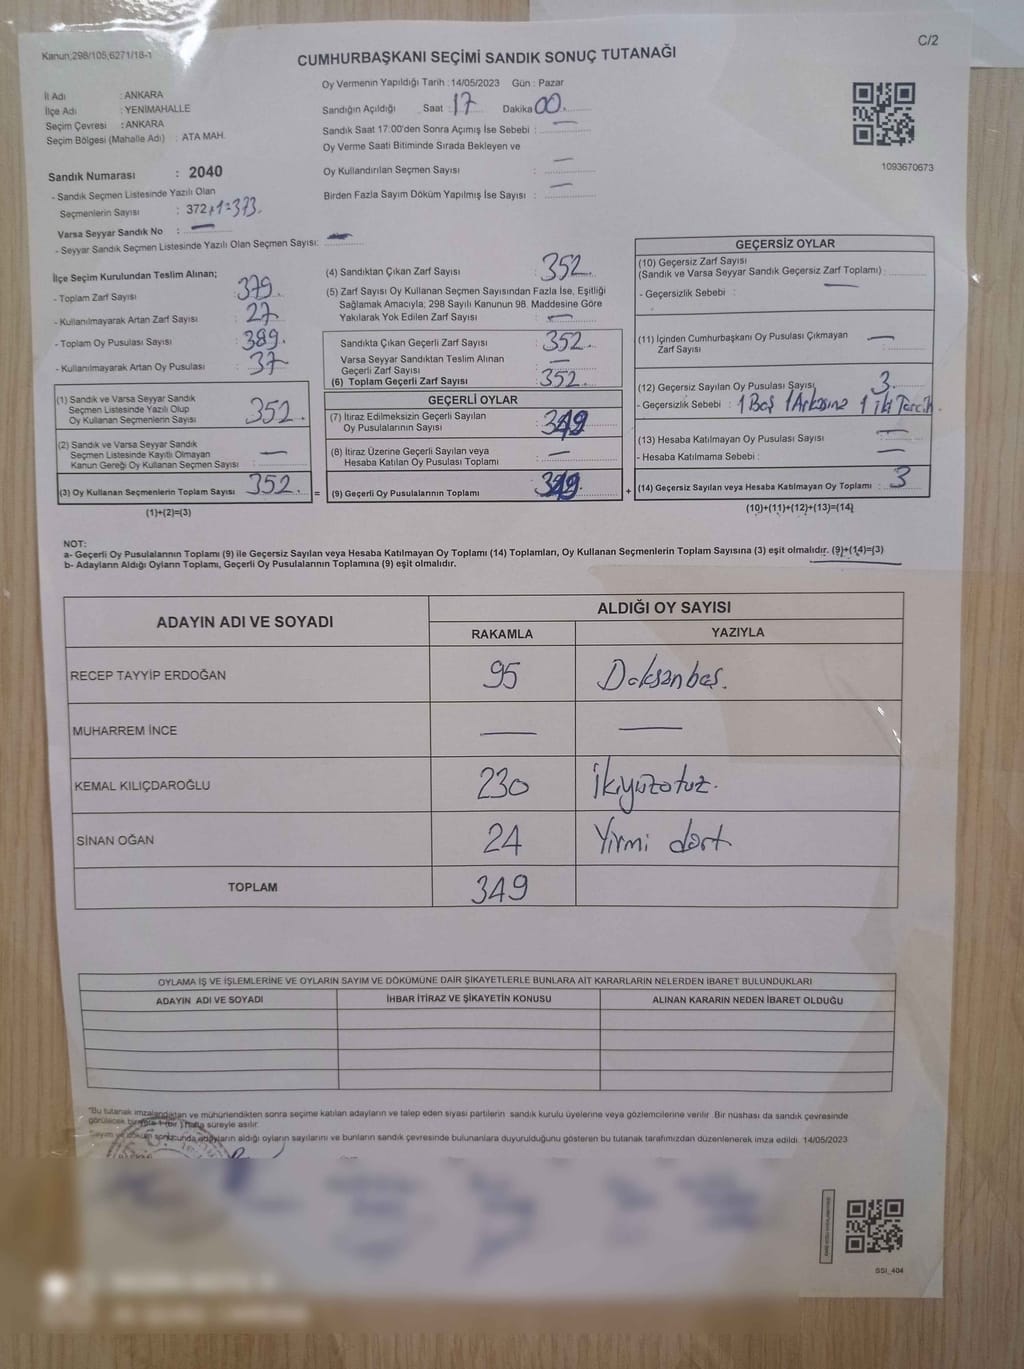 Kanun;298/105,6271/18-1
C/2
CUMHURBAŞKANI SEÇİMİ SANDIK SONUÇ TUTANAĞI
Oy Vermenin Yapıldığı Tarih : 14/05/2023 Gün : Pazar
İl Adı : ANKARA
İlçe Adı : YENİMAHALLE
Seçim Çevresi : ANKARA
Seçim Bölgesi (Mahalle Adı) : ATA MAH.
Sandığın Açıldığı Saat : 17 Dakika 00.
Sandık Saat 17:00'den Sonra Açımış İse Sebebi : —
Oy Verme Saati Bitiminde Sırada Bekleyen ve
Oy Kullandırılan Seçmen Sayısı : —
Birden Fazla Sayım Döküm Yapılmış İse Sayısı : —
1093670673
Sandık Numarası : 2040
- Sandık Seçmen Listesinde Yazılı Olan
Seçmenlerin Sayısı : 372+1=373.
Varsa Seyyar Sandık No : —
- Seyyar Sandık Seçmen Listesinde Yazılı Olan Seçmen Sayısı: —
İlçe Seçim Kurulundan Teslim Alınan;
- Toplam Zarf Sayısı : 379.
- Kullanılmayarak Artan Zarf Sayısı : 27
- Toplam Oy Pusulası Sayısı : 389.
- Kullanılmayarak Artan Oy Pusulası : 37
(1) Sandık ve Varsa Seyyar Sandık
Seçmen Listesinde Yazılı Olup
Oy Kullanan Seçmenlerin Sayısı : 352
(2) Sandık ve Varsa Seyyar Sandık
Seçmen Listesinde Kayıtlı Olmayan
Kanun Gereği Oy Kullanan Seçmen Sayısı : —
(3) Oy Kullanan Seçmenlerin Toplam Sayısı 352. =
(1)+(2)=(3)
(4) Sandıktan Çıkan Zarf Sayısı : 352.
(5) Zarf Sayısı Oy Kullanan Seçmen Sayısından Fazla İse, Eşitliği
Sağlamak Amacıyla; 298 Sayılı Kanunun 98. Maddesine Göre
Yakılarak Yok Edilen Zarf Sayısı : —
Sandıkta Çıkan Geçerli Zarf Sayısı : 352.
Varsa Seyyar Sandıktan Teslim Alınan
Geçerli Zarf Sayısı : —
(6) Toplam Geçerli Zarf Sayısı : 352.
GEÇERLİ OYLAR
(7) İtiraz Edilmeksizin Geçerli Sayılan
Oy Pusulalarının Sayısı : 349
(8) İtiraz Üzerine Geçerli Sayılan veya
Hesaba Katılan Oy Pusulası Toplamı : —
(9) Geçerli Oy Pusulalarının Toplamı : 349. +
GEÇERSİZ OYLAR
(10) Geçersiz Zarf Sayısı
(Sandık ve Varsa Seyyar Sandık Geçersiz Zarf Toplamı) : —
- Geçersizlik Sebebi :
(11) İçinden Cumhurbaşkanı Oy Pusulası Çıkmayan
Zarf Sayısı : —
(12) Geçersiz Sayılan Oy Pusulası Sayısı : 3.
- Geçersizlik Sebebi : 1 Boş 1 Arkasına 1 İki Tercih.
(13) Hesaba Katılmayan Oy Pusulası Sayısı : —
- Hesaba Katılmama Sebebi : —
(14) Geçersiz Sayılan veya Hesaba Katılmayan Oy Toplamı : 3
(10)+(11)+(12)+(13)=(14)
NOT:
a- Geçerli Oy Pusulalarının Toplamı (9) ile Geçersiz Sayılan veya Hesaba Katılmayan Oy Toplamı (14) Toplamları, Oy Kullanan Seçmenlerin Toplam Sayısına (3) eşit olmalıdır. (9)+(14)=(3)
b- Adayların Aldığı Oyların Toplamı, Geçerli Oy Pusulalarının Toplamına (9) eşit olmalıdır.
ADAYIN ADI VE SOYADI ALDIĞI OY SAYISI
RAKAMLA YAZIYLA
RECEP TAYYİP ERDOĞAN 95 Doksanbeş.
MUHARREM İNCE — —
KEMAL KILIÇDAROĞLU 230 İkiyüzotuz.
SİNAN OĞAN 24 Yirmi dört
TOPLAM 349
OYLAMA İŞ VE İŞLEMLERİNE VE OYLARIN SAYIM VE DÖKÜMÜNE DAİR ŞİKAYETLERLE BUNLARA AİT KARARLARIN NELERDEN İBARET BULUNDUKLARI
ADAYIN ADI VE SOYADI İHBAR İTİRAZ VE ŞİKAYETİN KONUSU ALINAN KARARIN NEDEN İBARET OLDUĞU
"Bu tutanak imzalandıktan ve mühürlendikten sonra seçime katılan adayların ve talep eden siyasi partilerin sandık kurulu üyelerine veya gözlemcilerine verilir. Bir nüshası da sandık çevresinde
görülecek bir yere 1 (bir ) hafta süreyle asılır.
Sayım ve döküm sonucunda adayların aldığı oyların sayılarını ve bunların sandık çevresinde bulunanlara duyurulduğunu gösteren bu tutanak tarafımızdan düzenlenerek imza edildi. 14/05/2023
SSI_404